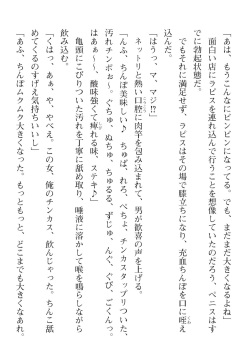 「あは、もうこんなにビンビンになってる。でも、まだまだ大きくなるよね」
面白い店にラビスを連れ込んで行うことを想像していたのだろう。ペニスはす
でに勃起状態だ。
でもそれに満足せず、ラビスはその場で膝立ちになり、充血ちんぽを口に咥え
込んだ。
「はうっ、マ、マジ!?」
ネットリと熱い口腔に肉竿を包み込まれて、男が歓喜の声を上げる。
「んふっ、ちんぽ美味しい♪　ちゅば、れろ、べちょ、チンカスタップリついた、
汚れチンポぉ～。ぐちゅ、ぬちゅ、ちゅるる、ずじゅ、んぐ、ぐび、ごくんっ。
はぁぁ～、酸味強くて痺れる味、ステキ♪」
亀頭にこびりついた汚れを丁寧に舐め取り、唾液に溶かして喉を鳴らしながら
飲み込む。
「くはっ、あぁ、や、やべえ、この女、俺のチンカス、飲んじゃった。ちんこ舐
めてくるのすげえ気持ちいいし」
「あふ、ちんぽムクムク大きくなった。もっともっと、どこまでも大きくなあれ。